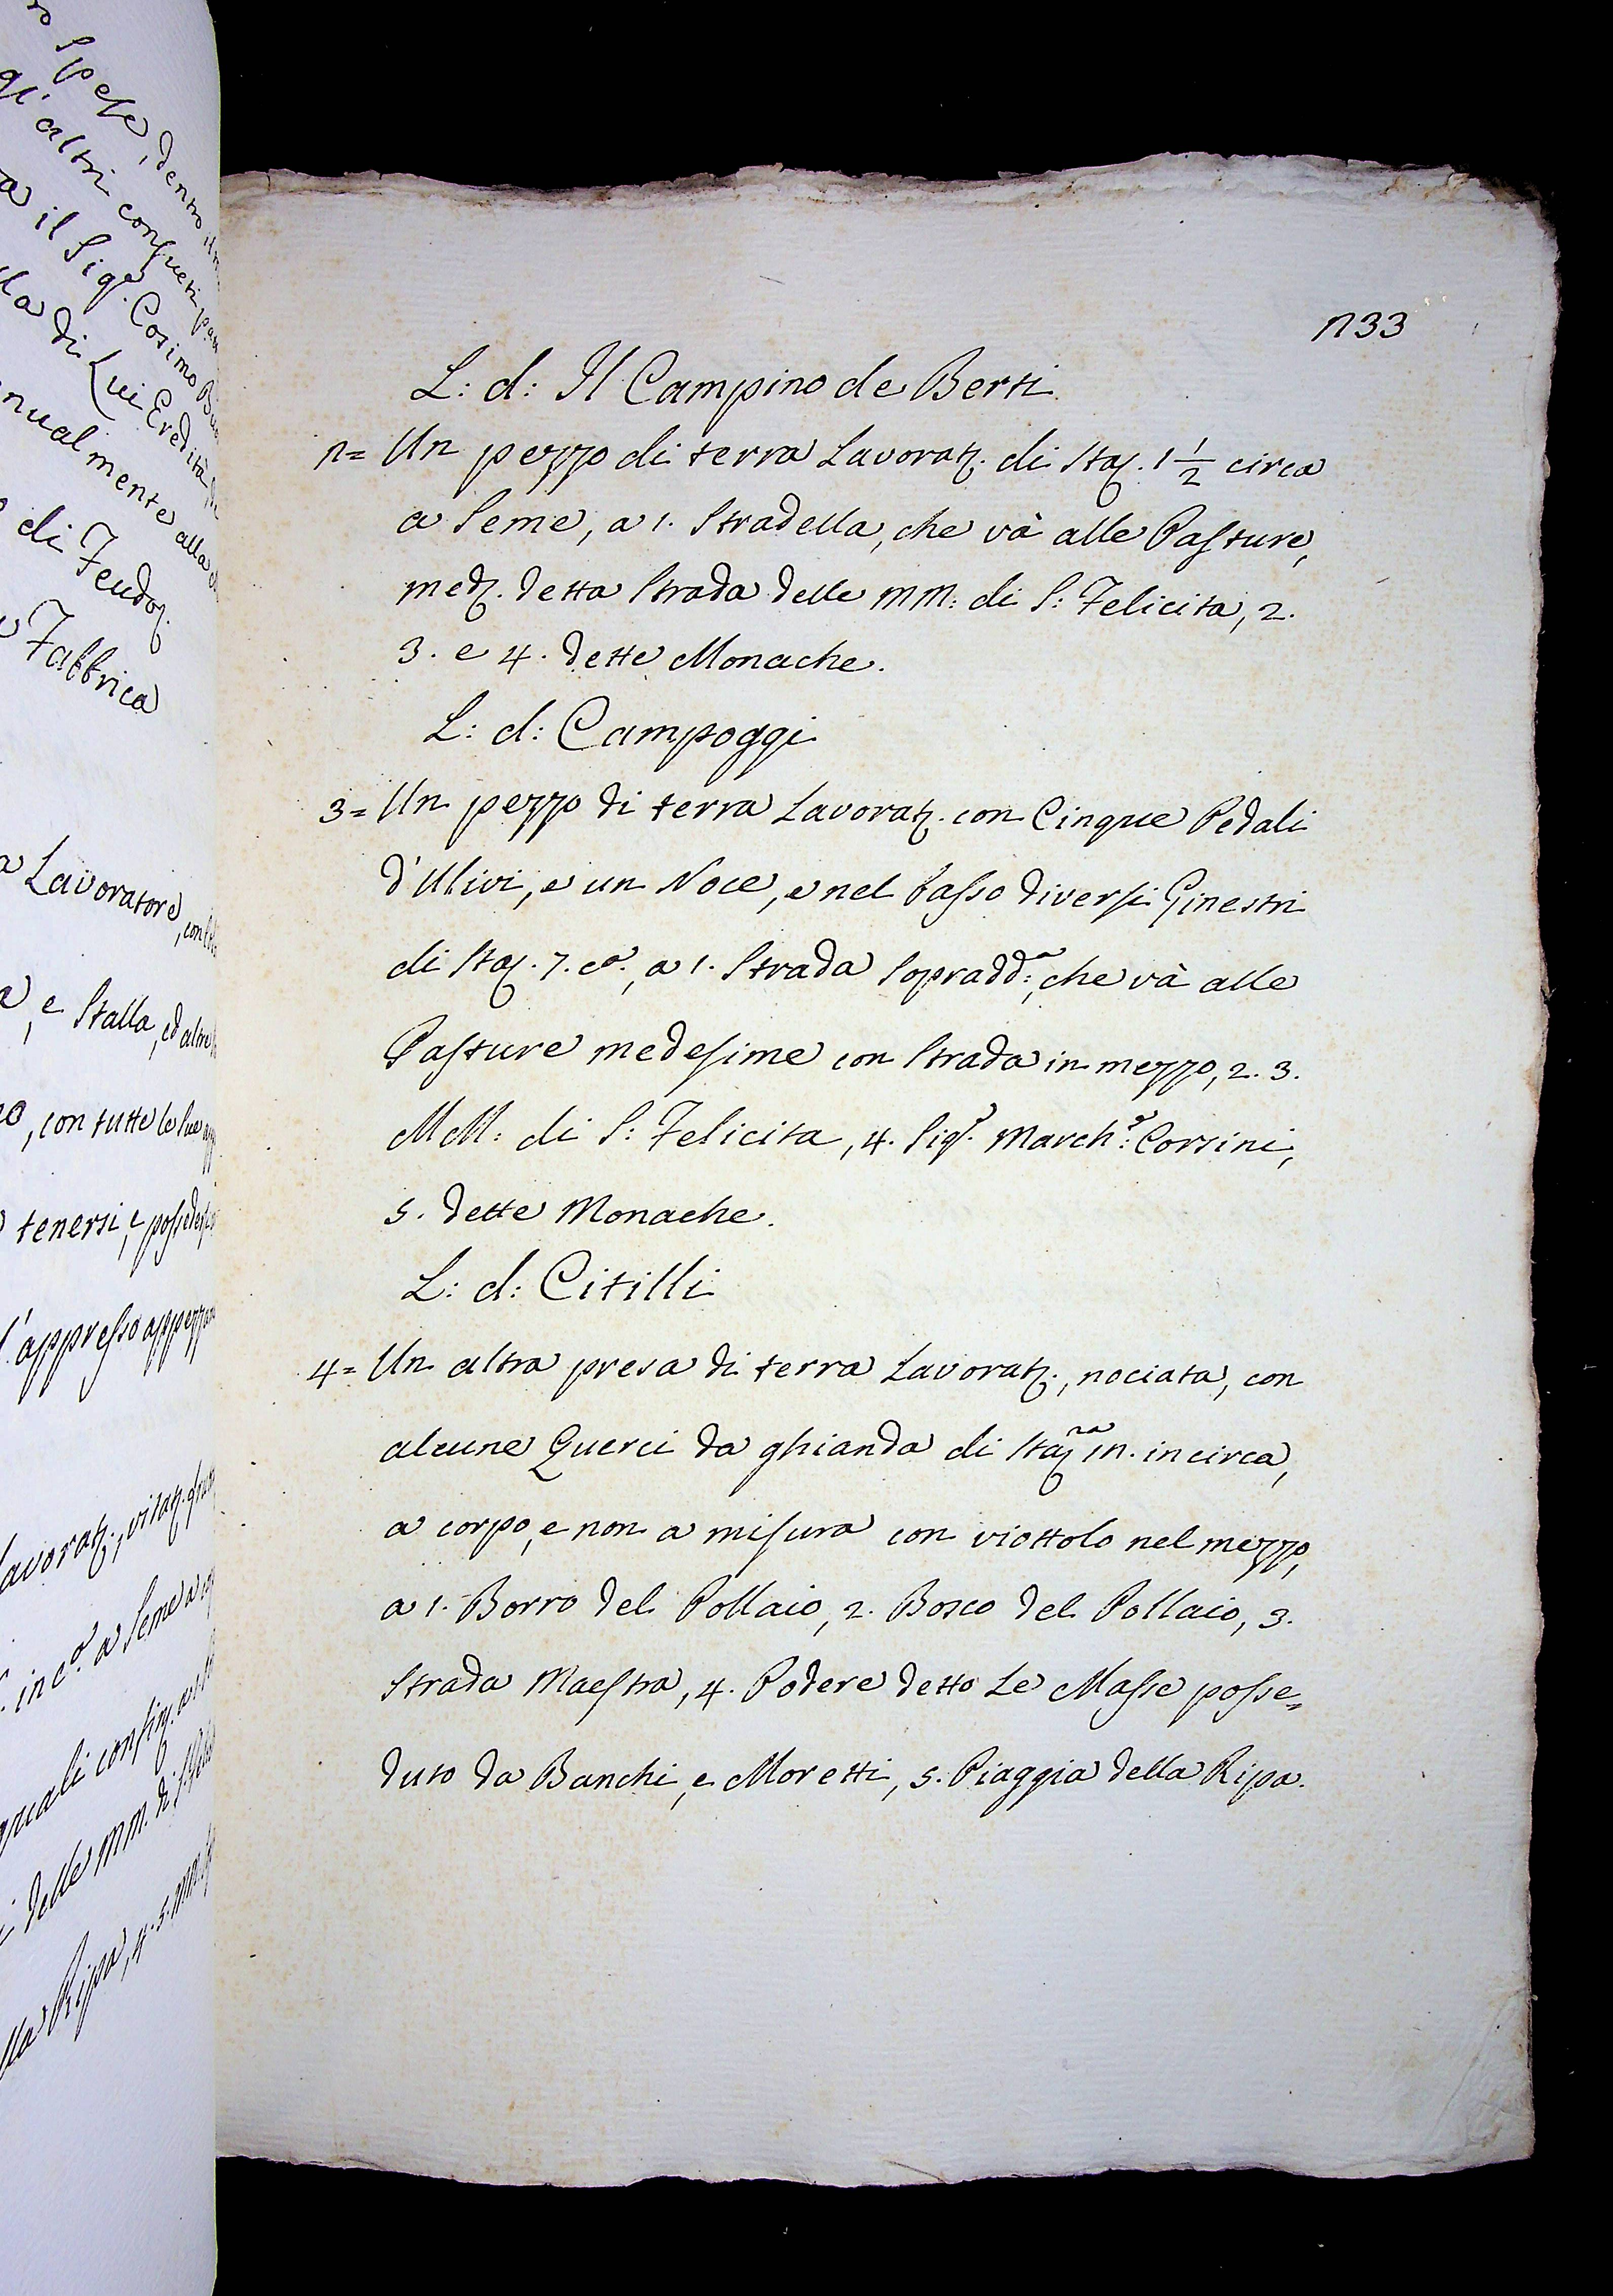 ro Spese, dentro il
gl'altri consueti
a il Sig.e Cosimo
la di Lui Eredità
nualmente alla
di Feudoz.
Fabbrica
a Lavoratore, con
a, e Stalla, ed altre
no, con tutte le sue
tenersi, e possedersi
l'appresso
lavoratz., vitatz.
in c.a a Seme a
quali confin. a
delle MM. di S.
lla Ripa, 4. 5. MM.
233
L: d: Il Campino de Berti
2= Un pezzo di terra Lavoratz. di Staz. 1 1/2 circa
a Seme, a 1. Stradella, che và alle Pasture,
medz. detta Strada delle MM: di S: Felicita, 2.
3. e 4. dette Monache.
L: d: Campoggi
3= Un pezzo di terra Lavoratz. con Cinque Pedali
d'Ulivi, e un Noce, e nel basso diversi Ginestri
di Staz. 7. c.a, a 1. Strada Sopradd:a, che và alle
Pasture medesime con Strada in mezzo, 2. 3.
MM: di S: Felicita, 4. Sig.e March:e Corsini,
5. dette Monache.
L: d: Citilli
4= Un altra presa di terra Lavoratz., nociata, con
alcune Querci da ghianda di Staz.na 12. in circa,
a corpo, e non a misura con viottolo nel mezzo,
a 1. Borro del Pollaio, 2. Bosco del Pollaio, 3.
Strada Maestra, 4. Podere detto Le Masse posse=
duto da Banchi, e Moretti, 5. Piaggia della Ripa.